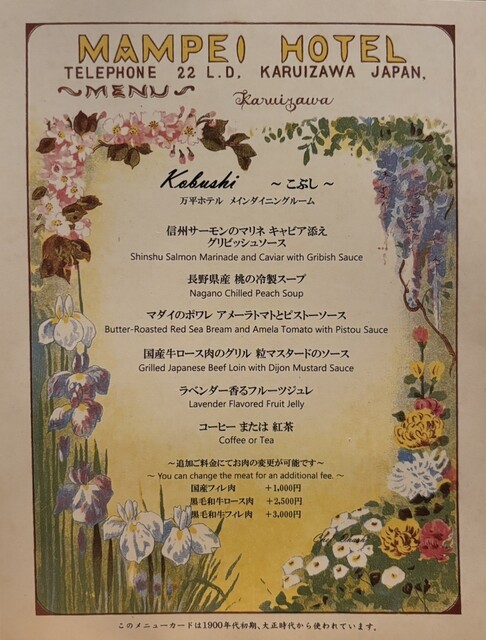 MAMPEI HOTEL
TELEPHONE 22 L.D. KARUIZAWA JAPAN.
~MENU~
Karuizawa
Kobushi ～こぶし～
万平ホテル メインダイニングルーム
信州サーモンのマリネ キャビア添え
グリビッシュソース
Shinshu Salmon Marinade and Caviar with Gribish Sauce
長野県産 桃の冷製スープ
Nagano Chilled Peach Soup
マダイのポワレ アメーラトマトとピストーソース
Butter-Roasted Red Sea Bream and Amela Tomato with Pistou Sauce
国産牛ロース肉のグリル 粒マスタードのソース
Grilled Japanese Beef Loin with Dijon Mustard Sauce
ラベンダー香るフルーツジュレ
Lavender Flavored Fruit Jelly
コーヒー または 紅茶
Coffee or Tea
～追加ご料金にてお肉の変更が可能です～
～ You can change the meat for an additional fee. ～
国産フィレ肉 ＋1,000円
黒毛和牛ロース肉 ＋2,500円
黒毛和牛フィレ肉 ＋3,000円
このメニューカードは1900年代初期、大正時代から使われています。